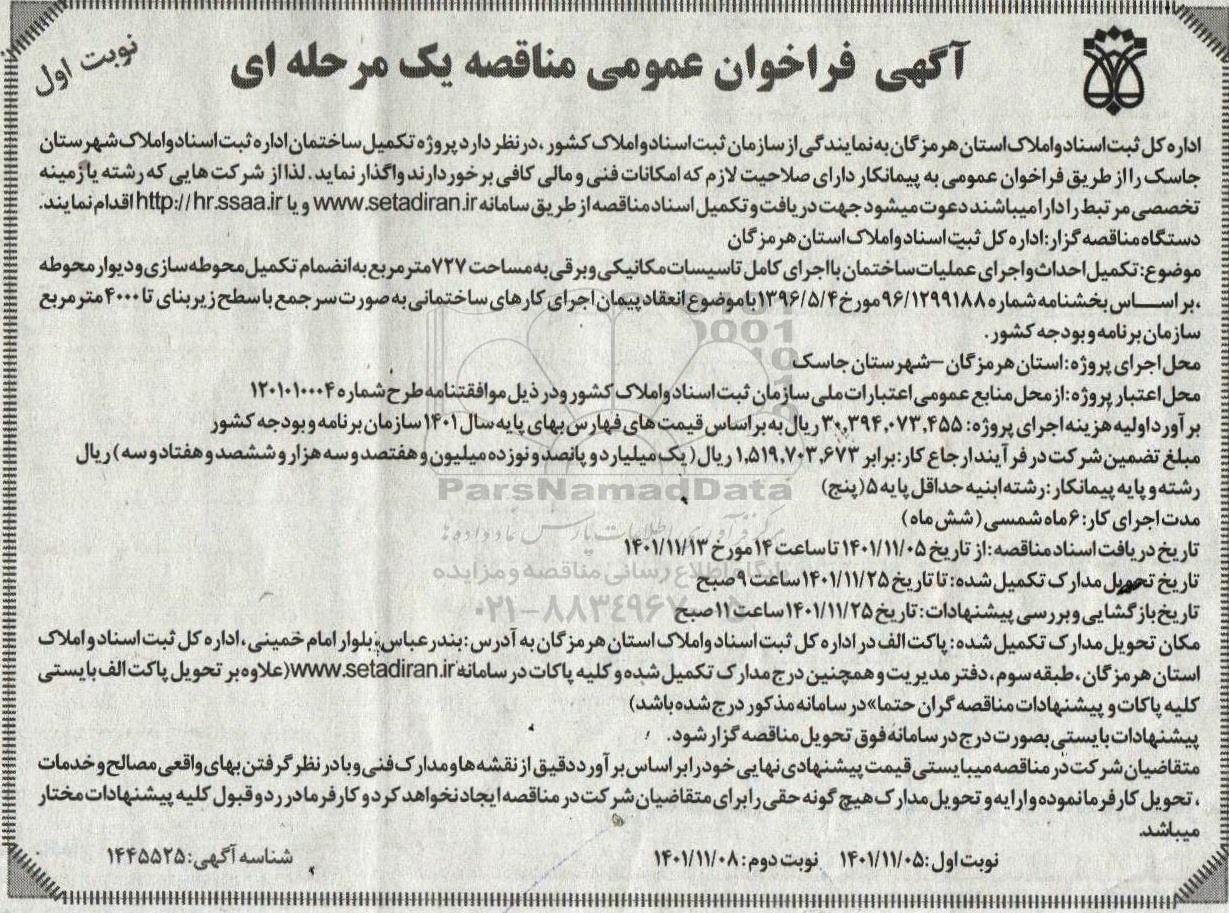 نوبت اول
آگهی فراخوان عمومی مناقصه یک مرحله ای
اداره کل ثبت اسناد و املاک استان هرمزگان به نمایندگی از سازمان ثبت اسناد و املاک کشور ، در نظر دارد پروژه تکمیل ساختمان اداره ثبت اسناد و املاک شهرستان
جاسک را از طریق فراخوان عمومی به پیمانکار دارای صلاحیت لازم که امکانات فنی و مالی کافی برخوردارند واگذار نماید . لذا از شرکت هایی که رشته یا زمینه
تخصصی مرتبط را دارا میباشند دعوت میشود جهت دریافت و تکمیل اسناد مناقصه از طریق سامانه www.setadiran.ir و یا http://hr.ssaa.ir اقدام نمایند.
دستگاه مناقصه گزار : اداره کل ثبت اسناد و املاک استان هرمزگان
موضوع : تکمیل احداث و اجرای عملیات ساختمان با اجرای کامل تاسیسات مکانیکی و برقی به مساحت ۷۲۷ متر مربع به انضمام تکمیل محوطه سازی و دیوار محوطه
، بر اساس بخشنامه شماره ۹۶/۱۲۹۹۱۸۸ مورخ ۱۳۹۶/۵/۴ با موضوع انعقاد پیمان اجرای کارهای ساختمانی به صورت سرجمع با سطح زیر بنای تا ۴۰۰۰ متر مربع
سازمان برنامه و بودجه کشور .
محل اجرای پروژه : استان هرمزگان – شهرستان جاسک
محل اعتبار پروژه : از محل منابع عمومی اعتبارات ملی سازمان ثبت اسناد و املاک کشور و در ذیل موافقتنامه طرح شماره ۱۲۰۱۰۱۰۰۰۴
برآورد اولیه هزینه اجرای پروژه : ۳۰,۳۹۴,۰۷۳,۴۵۵ ریال به بر اساس قیمت های فهارس بهای پایه سال ۱۴۰۱ سازمان برنامه و بودجه کشور
مبلغ تضمین شرکت در فرآیند ارجاع کار : برابر ۱,۵۱۹,۷۰۳,۶۷۳ ریال ( یک میلیارد و پانصد و نوزده میلیون و هفتصد و سه هزار و ششصد و هفتاد و سه ) ریال
ParsNamadData
رشته و پایه پیمانکار : رشته ابنیه حداقل پایه ۵ ( پنج )
مدت اجرای کار : ۶ ماه شمسی ( شش ماه )
مرکز فرآوری اطلاعات پارس نماد داده ها
تاریخ دریافت اسناد مناقصه : از تاریخ ۱۴۰۱/۱۱/۰۵ تا ساعت ۱۴ مورخ ۱۴۰۱/۱۱/۱۳
پایگاه اطلاع رسانی مناقصه و مزایده
تاریخ تحویل مدارک تکمیل شده : تا تاریخ ۱۴۰۱/۱۱/۲۵ ساعت ۹ صبح
۰۲۱-۸۸۳۴۹۶۷۰-۵
تاریخ بازگشایی و بررسی پیشنهادات : تاریخ ۱۴۰۱/۱۱/۲۵ ساعت ۱۱ صبح
مکان تحویل مدارک تکمیل شده : پاکت الف در اداره کل ثبت اسناد و املاک استان هرمزگان به آدرس : بندرعباس، بلوار امام خمینی ، اداره کل ثبت اسناد و املاک
استان هرمزگان ، طبقه سوم ، دفتر مدیریت و همچنین درج مدارک تکمیل شده و کلیه پاکات در سامانه www.setadiran.ir ( علاوه بر تحویل پاکت الف بایستی
کلیه پاکات و پیشنهادات مناقصه گران حتما» در سامانه مذکور درج شده باشد )
پیشنهادات بایستی بصورت درج در سامانه فوق تحویل مناقصه گزار شود .
متقاضیان شرکت در مناقصه میبایستی قیمت پیشنهادی نهایی خود را بر اساس برآورد دقیق از نقشه ها و مدارک فنی و با در نظر گرفتن بهای واقعی مصالح و خدمات
، تحویل کارفرما نموده و ارایه و تحویل مدارک هیچ گونه حقی را برای متقاضیان شرکت در مناقصه ایجاد نخواهد کرد و کارفرما در رد و قبول کلیه پیشنهادات مختار
میباشد.
نوبت اول : ۱۴۰۱/۱۱/۰۵ نوبت دوم : ۱۴۰۱/۱۱/۰۸ شناسه آگهی : ۱۴۴۵۵۲۵